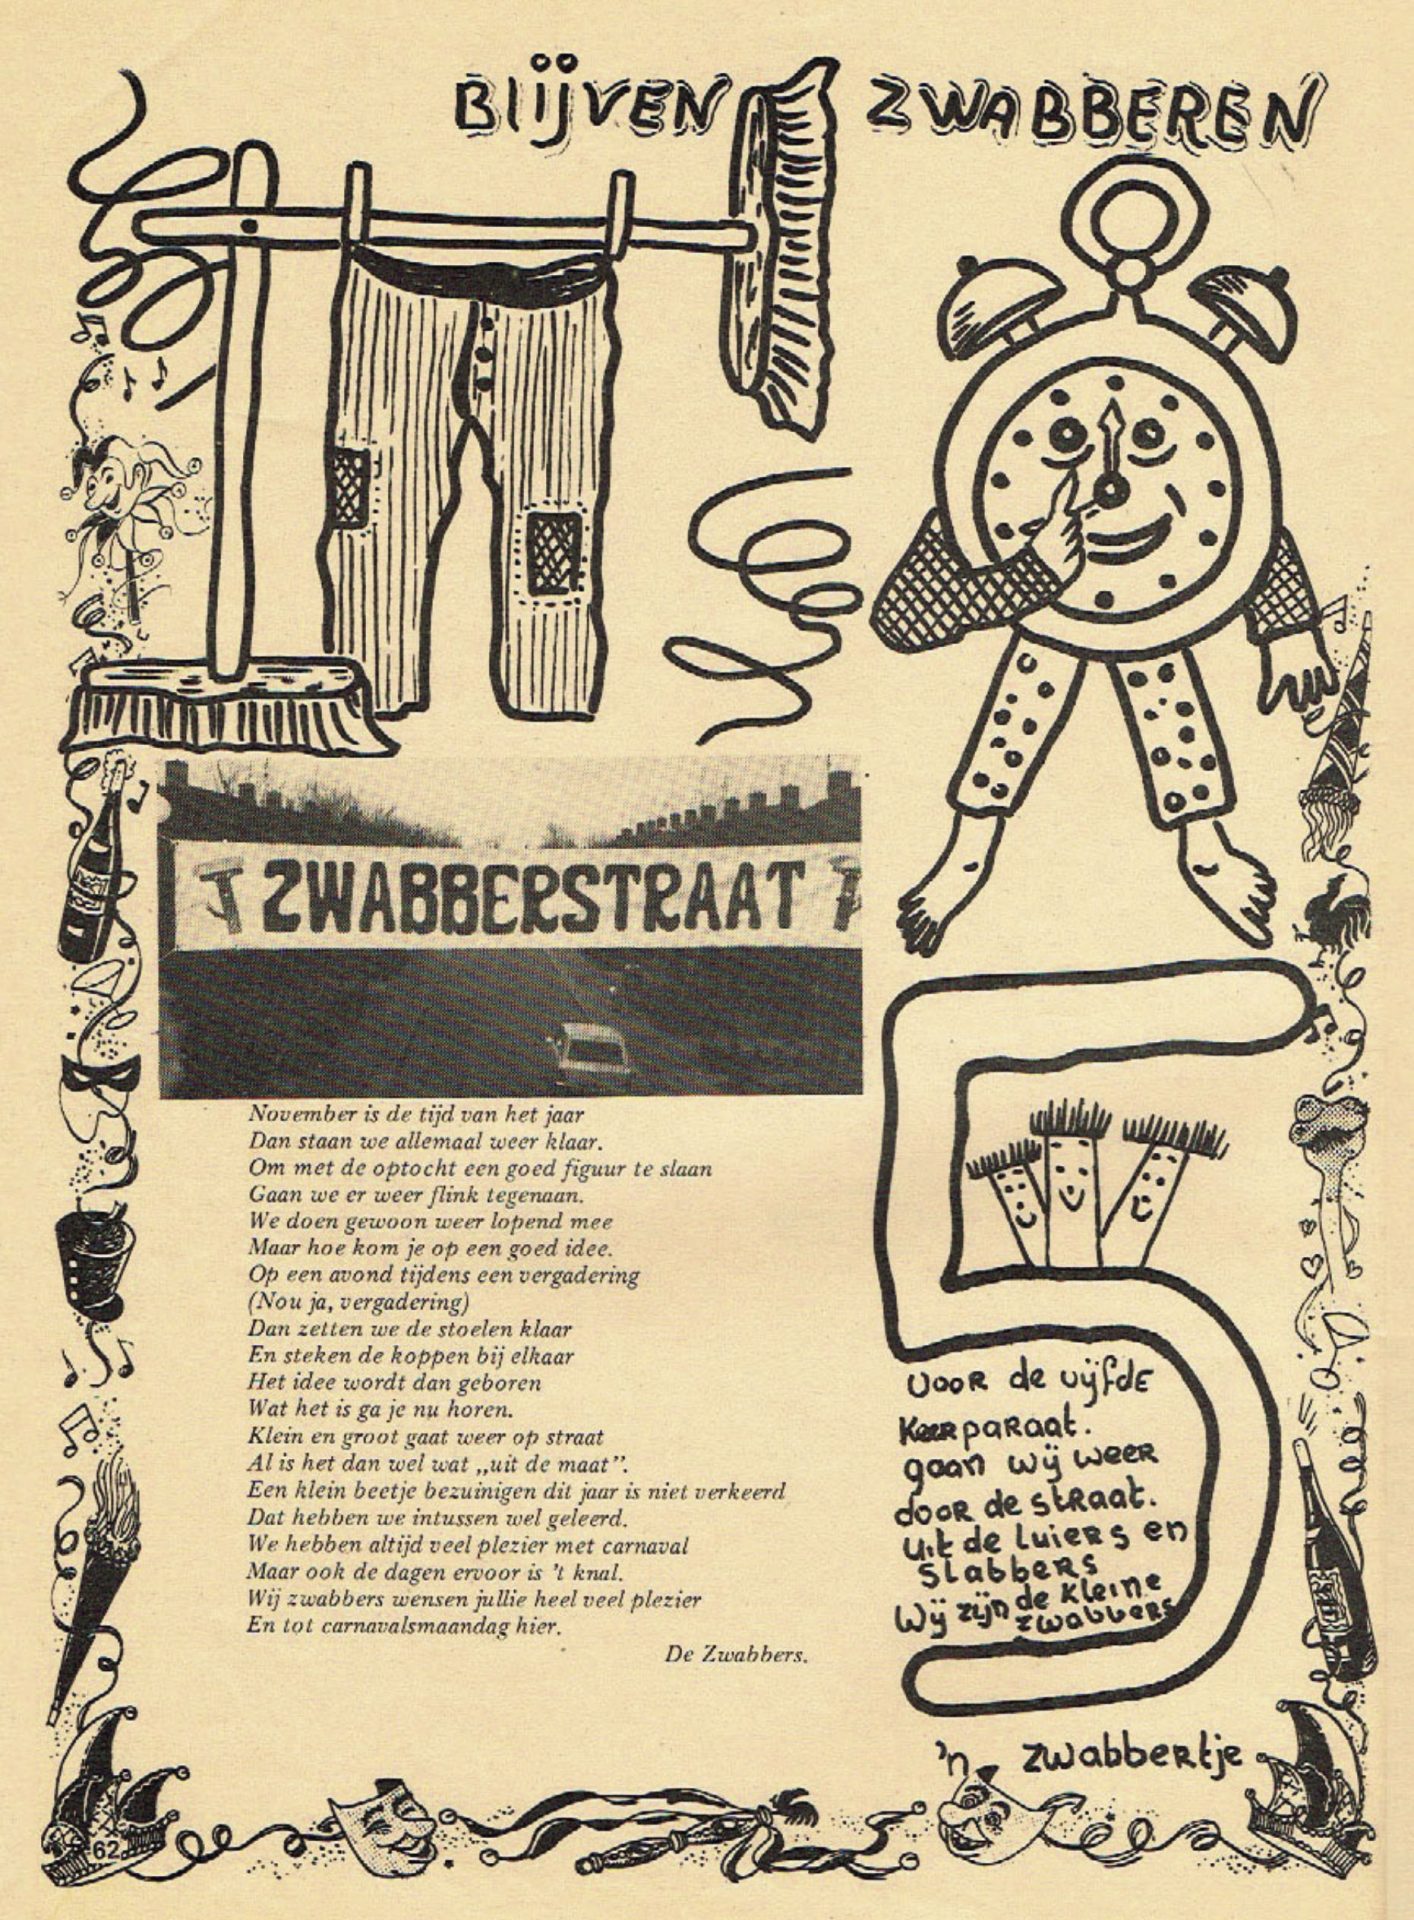 BlijVEN ZWABBEREN
ZWABBERSTRAAT
November is de tijd van het jaar
Dan staan we allemaal weer klaar.
Om met de optocht een goed figuur te slaan
Gaan we er weer flink tegenaan.
We doen gewoon weer lopend mee
Maar hoe kom je op een goed idee.
Op een avond tijdens een vergadering
(Nou ja, vergadering)
Dan zetten we de stoelen klaar
En steken de koppen bij elkaar
Het idee wordt dan geboren
Wat het is ga je nu horen.
Klein en groot gaat weer op straat
Al is het dan wel wat „uit de maat”.
Een klein beetje bezuinigen dit jaar is niet verkeerd
Dat hebben we intussen wel geleerd.
We hebben altijd veel plezier met carnaval
Maar ook de dagen ervoor is 't knal.
Wij zwabbers wensen jullie heel veel plezier
En tot carnavalsmaandag hier.
De Zwabbers.
5
Voor de vijfde
Keer paraat.
gaan wij weer
door de straat.
Uit de luiers en
Slabbers
Wij zijn de kleine
zwabbers
'n zwabbertje
62